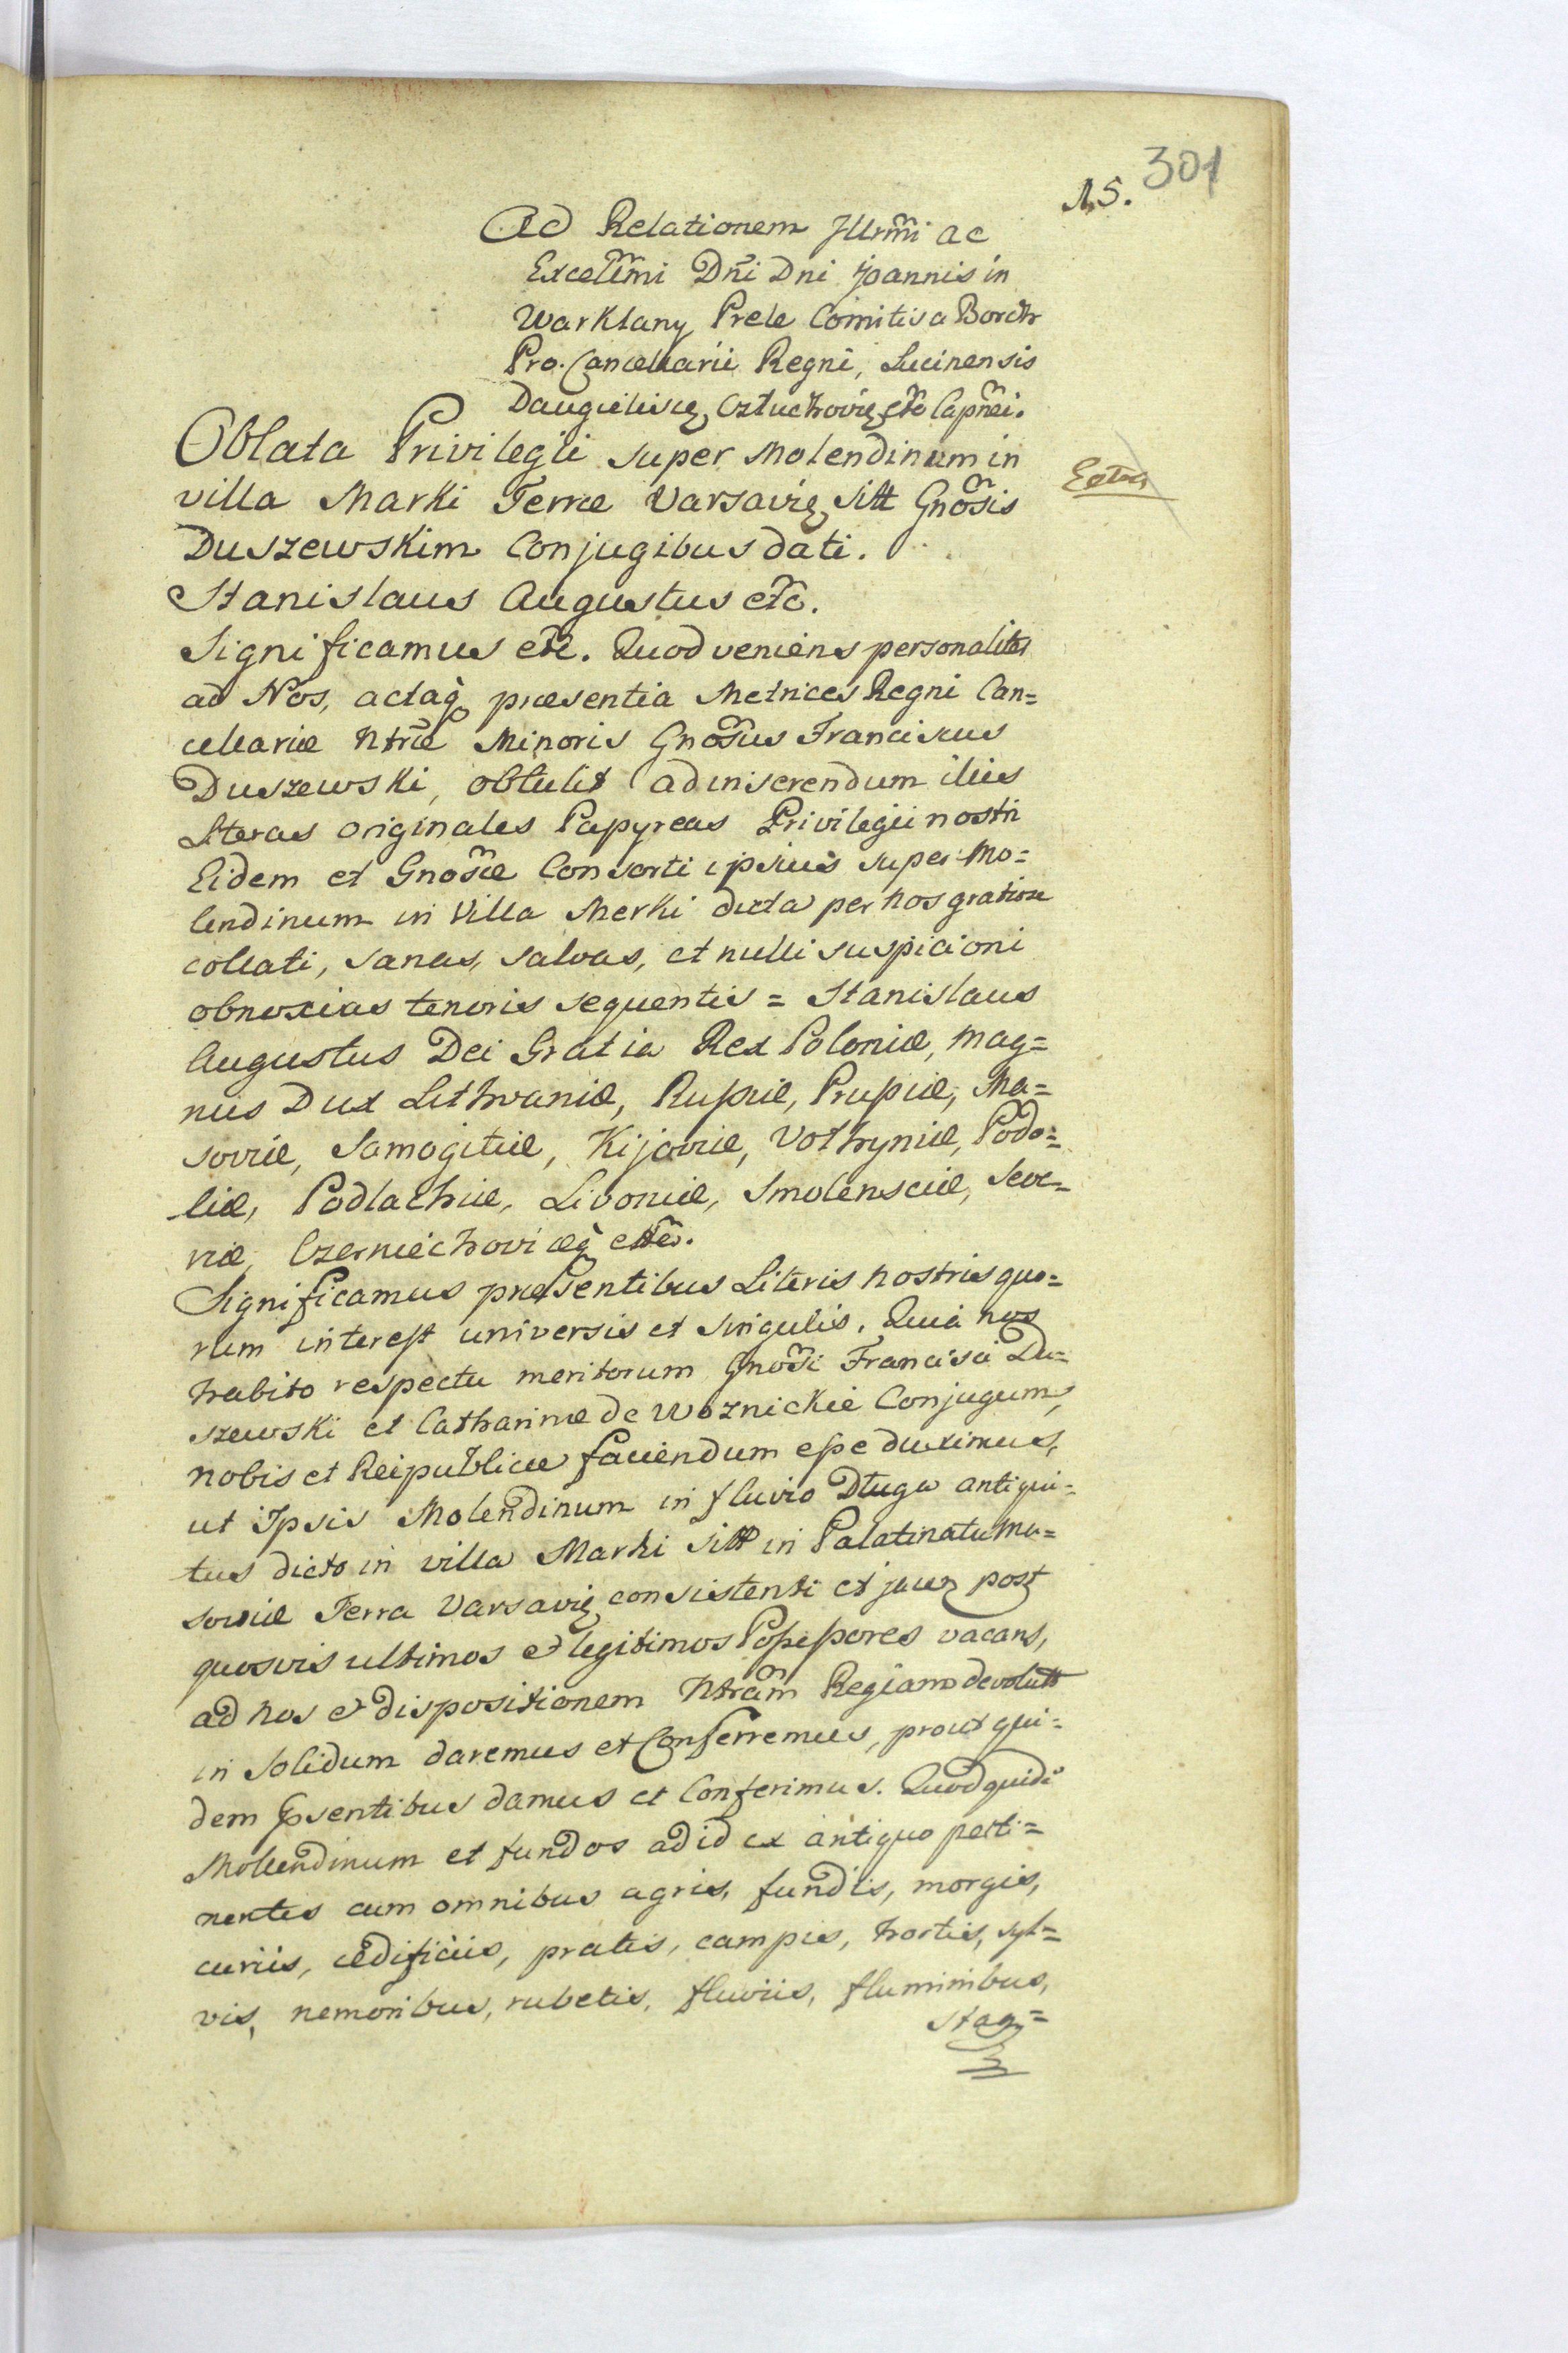 301
Ad Relationem Illrm̃i ac
Excellm̃i Dñi Dni Joannis in
Warklany Prele Comitis a Borch
Pro. Cancellarii Regni, Lucinensis
Daugielisię, Cztuchovię etc̃ Capñei.
Oblata Privilegii super Molendinum in
villa Marki Terræ Varsavię sitt Gnosĩs
Duszewskim Conjugibus dati.
Stanislaus Augustus etc̃.
Significamus etc̃. Quod veniens personaliter
ad Nos, actaq̃ præsentia Metrices Regni Can=
cellariæ Ntr̃æ Minoris Gnosũs Franciscus
Duszewski, obtulit ad inserendum illis
Literas originales Papyreas Privilegii nostri
Eidem et Gnosæ̃ Consorti ipsius super Mo=
lendinum in Villa Merki dicta per Nos gratiose
collati, sanas, salvas, et nulli suspicioni
obnoxias tenoris sequentis = Stanislaus
Augustus Dei Gratia Rex Poloniæ, Mag=
nus Dux Lithvaniæ, Russiæ, Prussiæ, Ma=
soviæ, Samogitiæ, Kijoviæ, Volhyniæ, Podo=
liæ, Podlachiæ, Livoniæ, Smolensciæ, Seve=
riæ, Czerniechoviæq̃ etc̃.
Significamus præsentibus Literis Nostris quo=
rum interest universis et singulis. Quia nos
habito respectu meritorum Gnosĩ Francisci Du=
szewski et Catharinæ de Woznickie Conjugum,
nobis et Reipublicæ faciendum esse duximus,
ut Ipsis Molendinum in fluvio Długa antiqui=
tus dicto in villa Marki sitt in Palatinatu Ma=
soviæ Terra Varsavię consistenti et post
quosvis ultimos et legitimos Possessores vacans,
ad Nos et dispositionem Ntrãm Regiam devolutt
in solidum daremus et Conferremus, prout qui=
dem pñsentibus damus et Conferimus. Quod quidẽ
Molendinum et fundos ad id ex antiquo perti=
nentes cum omnibus agris, fundis, morgis,
curiis, ædificiis, pratis, campis, hortis, syl=
vis, nemoribus, rubetis, fluviis, fluminibus,
stag=